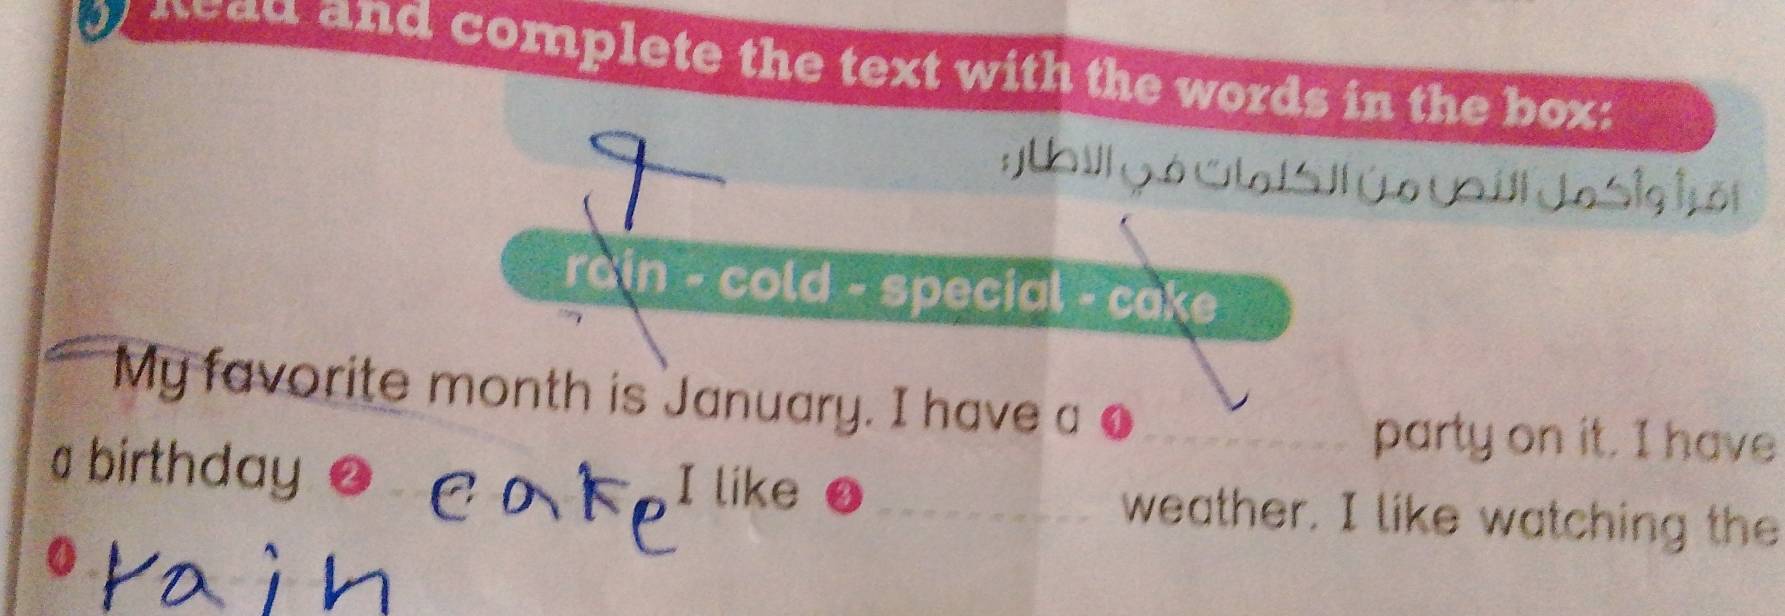 3 Read and complete the text with the words in the box:
اقرأ وأكمل النص من الكلمات في الاطار:
rain - cold - special - cake
My favorite month is January. I have a 1 ............ party on it. I have
a birthday 2 cake I like 3 ............ weather. I like watching the
4 rain